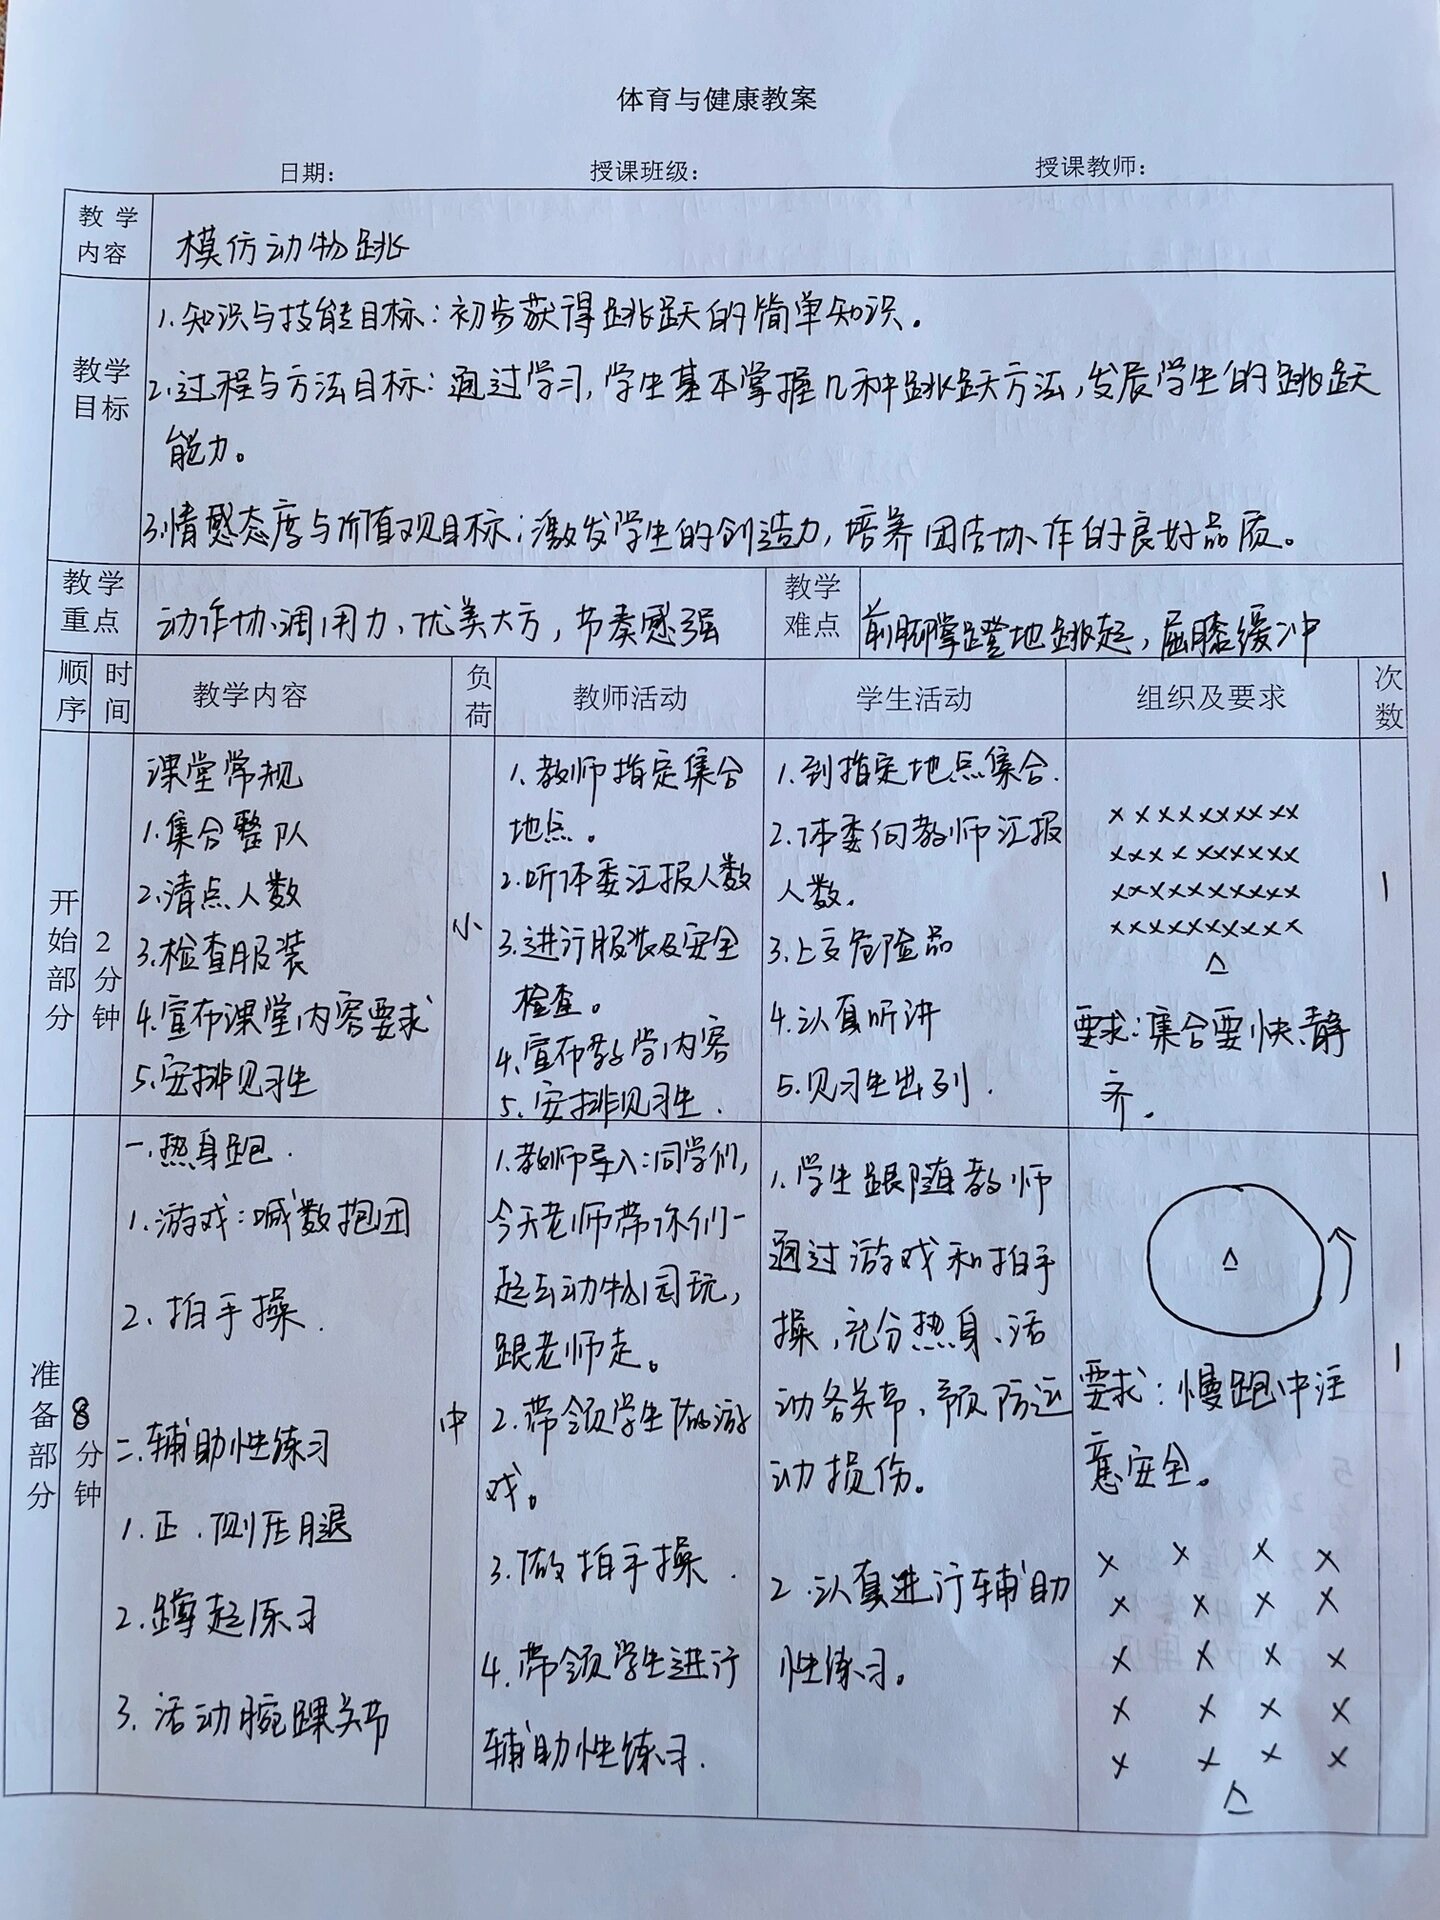 体育与健康教案
日期：
授课班级：
授课教师：
教学
内容
模仿动物跳
教学
目标
1.知识与技能目标：初步获得跳跃的简单知识。
2.过程与方法目标：通过学习，学生基本掌握几种跳跃方法，发展学生的跳跃
能力。
3.情感态度与价值观目标：激发学生的创造力，培养团结协作的良好品质。
教学
重点
动作协调用力、优美大方，节奏感强
教学
难点
前脚掌蹬地跳起，屈膝缓冲
顺序
时间
教学内容
负荷
教师活动
学生活动
组织及要求
次数
开始部分
2分钟
课堂常规
1.集合整队
2.清点人数
3.检查服装
4.宣布课堂内容要求
5.安排见习生
小
1.教师指定集合
地点。
2.听体委汇报人数
3.进行服装及安全
检查。
4.宣布教学内容
5.安排见习生.
1.到指定地点集合.
2.体委向教师汇报
人数.
3.上交危险品
4.认真听讲
5.见习生出列.
××××××××××
××××××××××
××××××××××
××××××××××
△
要求：集合要快、静
齐.
1
准备部分
8分钟
一.热身跑.
1.游戏：喊数抱团
2.拍手操.
二.辅助性练习
1.正.侧压腿
2.蹲起练习
3.活动腕踝关节
中
1.教师导入：同学们，
今天老师带你们一
起去动物园玩，
跟老师走。
2.带领学生做游
戏。
3.做拍手操.
4.带领学生进行
辅助性练习.
1.学生跟随教师
通过游戏和拍手
操，充分热身、活
动各关节，预防运
动损伤。
2.认真进行辅助
性练习。
△
要求：慢跑中注
意安全。
× × × ×
× × × ×
× × × ×
× × × ×
× × × ×
△
1